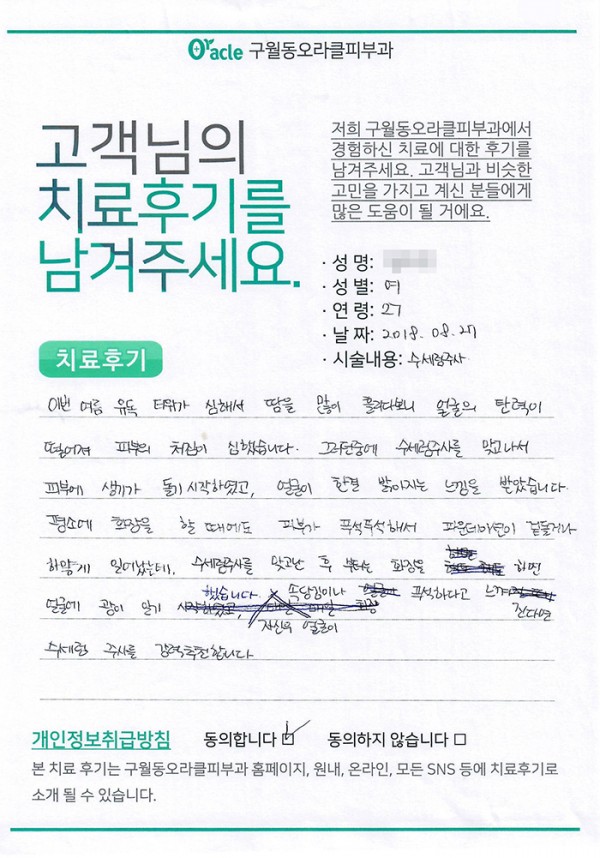 Oracle 구월동오라클피부과
고객님의
치료후기를
남겨주세요.
저희 구월동오라클피부과에서
경험하신 치료에 대한 후기를
남겨주세요. 고객님과 비슷한
고민을 가지고 계신 분들에게
많은 도움이 될 거에요.
· 성 명:
· 성 별: 여
· 연 령: 27
· 날 짜: 2018. 08. 27
· 시술내용: 수세림주사
치료후기
이번 여름 유독 더위가 심해서 땀을 많이 흘리다보니 얼굴의 탄력이
떨어져 피부의 처짐이 심했습니다. 그러던중에 수세림주사를 맞고나서
피부에 생기가 돌기 시작하였고, 얼굴이 한결 밝아지는 느낌을 받았습니다.
평소에 화장을 할 때에도 피부가 푸석푸석해서 파운데이션이 겉돌거나
하얗게 일어났는데, 수세림주사를 맞고난 후 부터는 화장을 하면
얼굴에 광이 나기 시작하였고,
했습니다. 속당김이나 푸석하다고 느껴
자신의 얼굴이 진다면
수세림 주사를 강력추천합니다
개인정보취급방침 동의합니다 ☑ 동의하지 않습니다 □
본 치료 후기는 구월동오라클피부과 홈페이지, 원내, 온라인, 모든 SNS 등에 치료후기로
소개 될 수 있습니다.